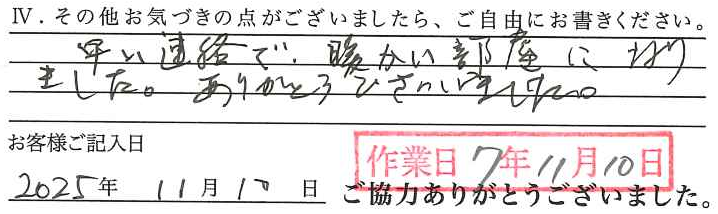 Ⅳ．その他お気づきの点がございましたら、ご自由にお書きください。
早い連絡で、暖かい部屋になり
ました。ありがとうございました。
お客様ご記入日
作業日 7年11月10日
2025年 11月10日 ご協力ありがとうございました。